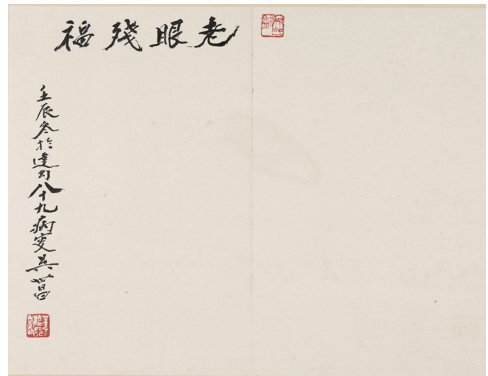 老眼殘福
壬辰冬於達八十九病叟吳昌